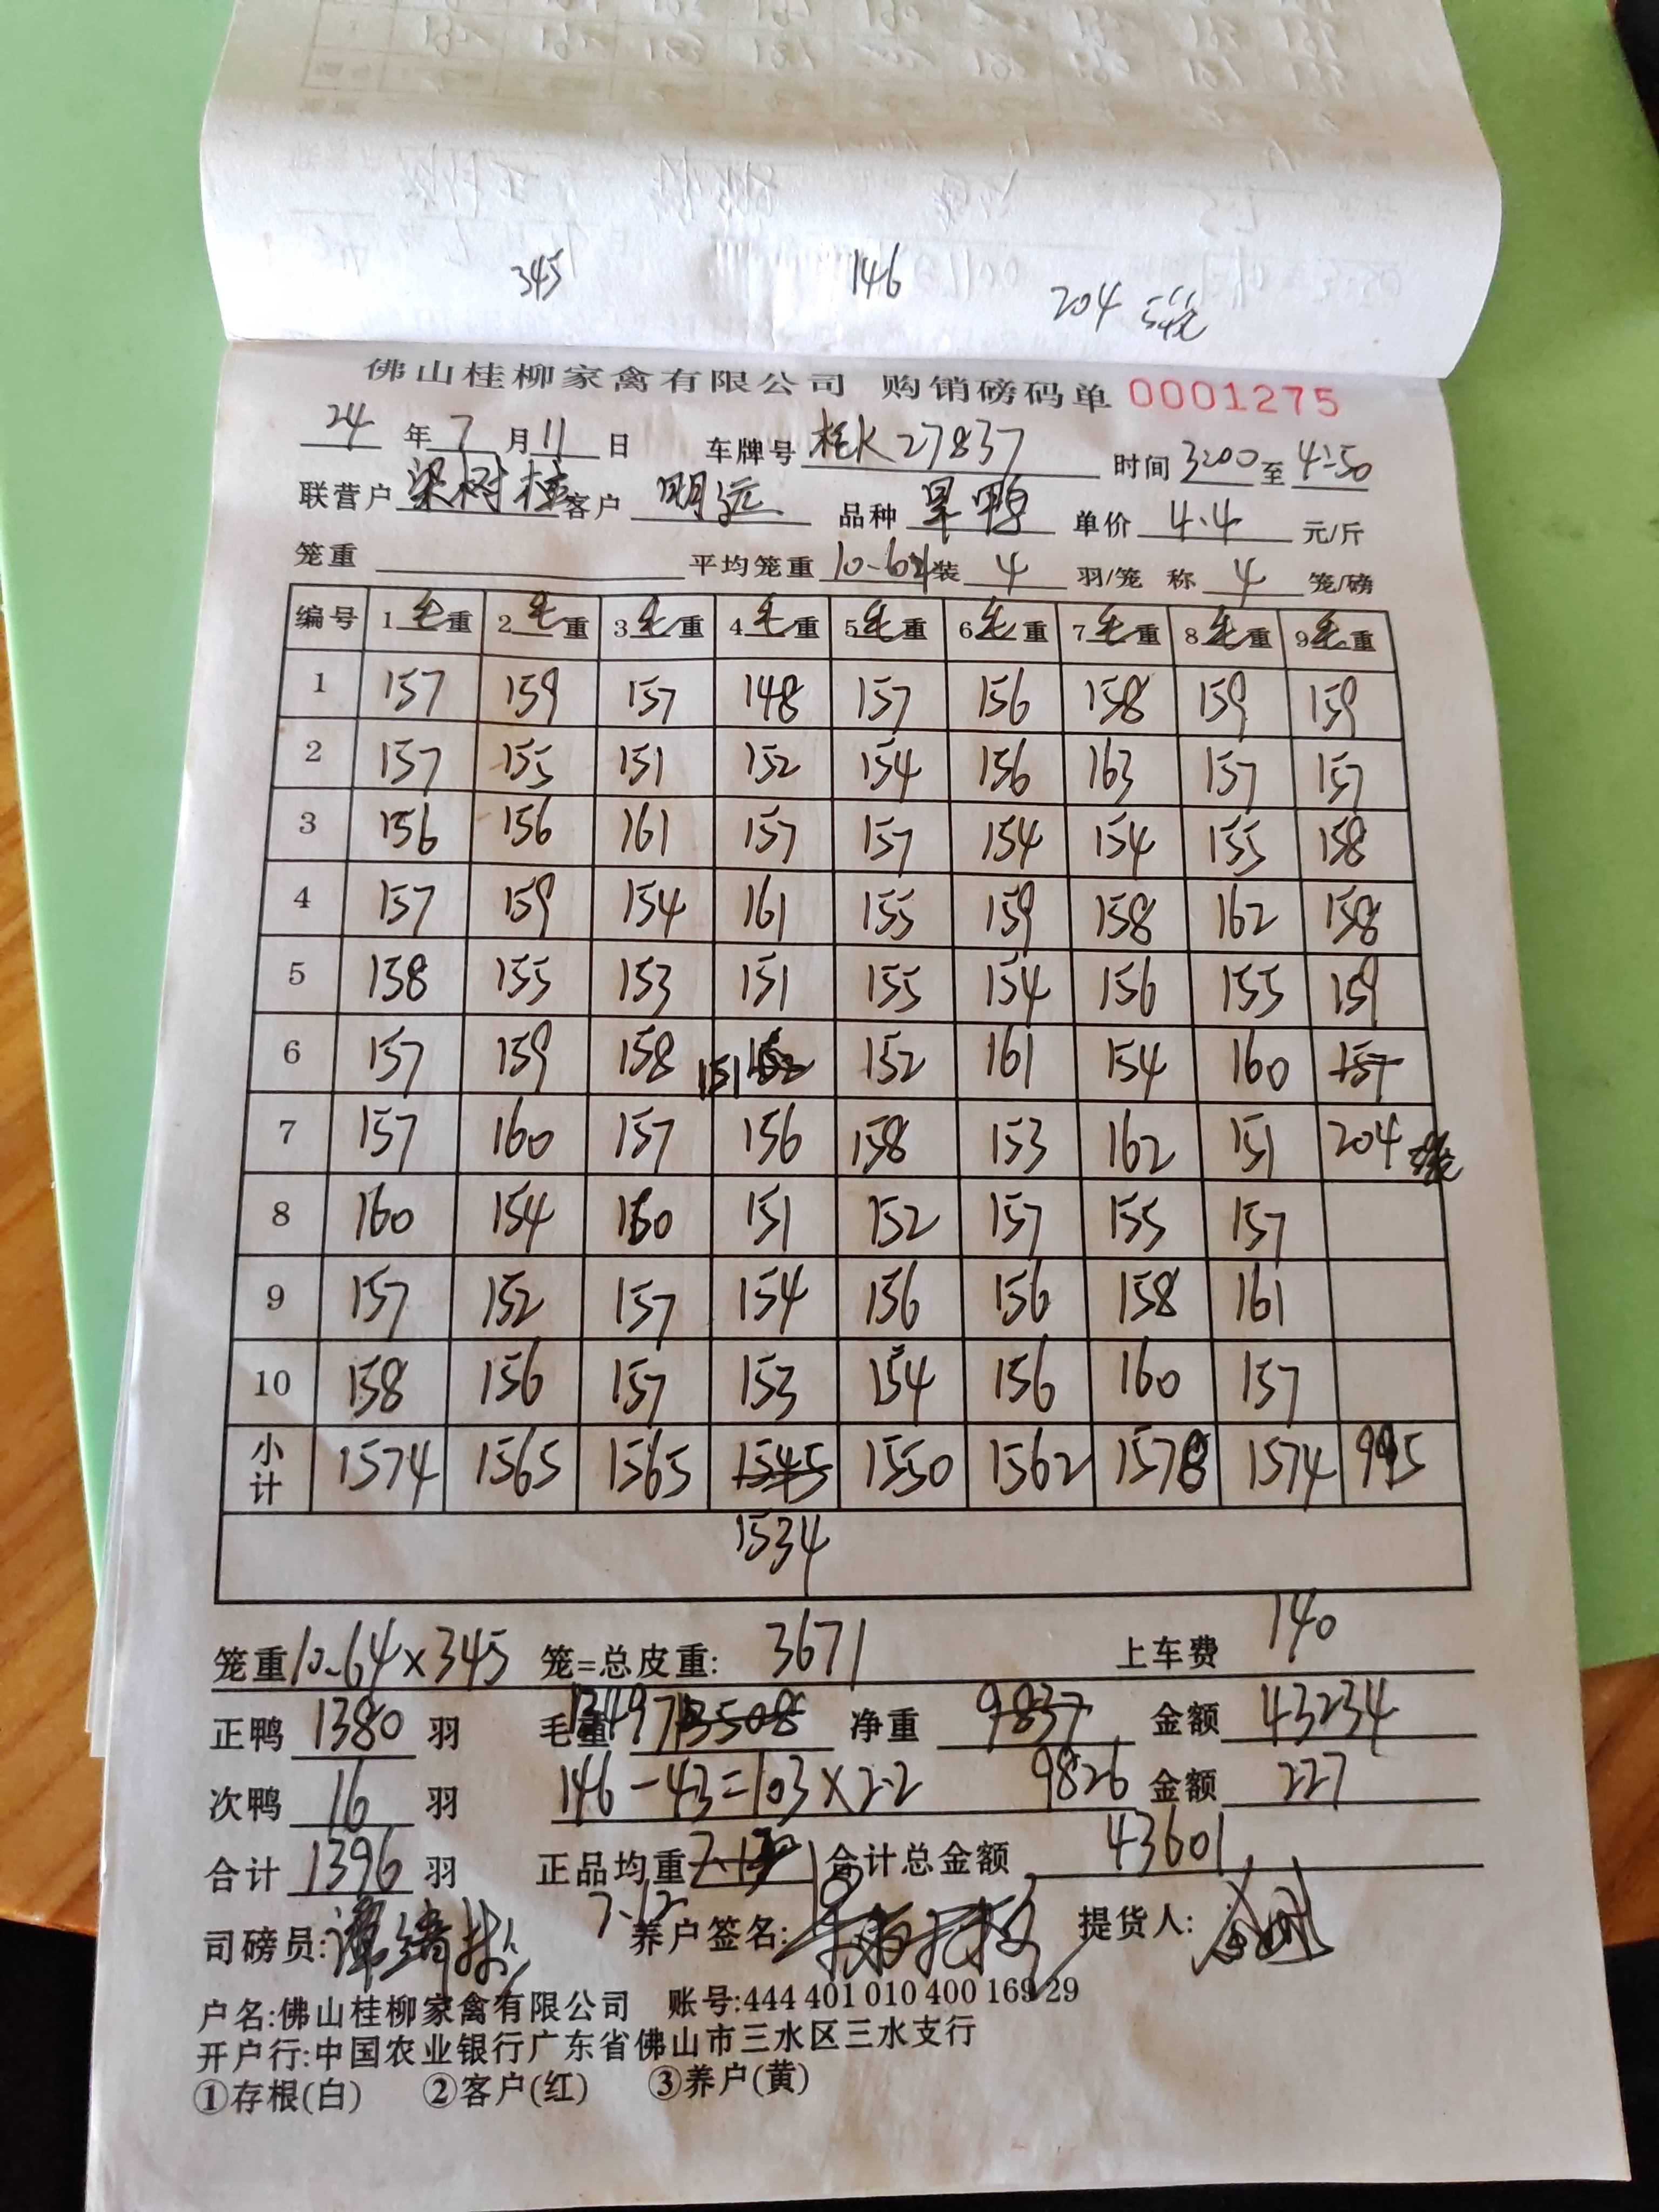 345 146 204 5笼
佛山桂柳家禽有限公司 购销磅码单 0001275
24 年 7 月 11 日 车牌号 桂K27837 时间 3:00 至 4:50
联营户 梁树桂 客户 明远 品种 旱鸭 单价 4.4 元/斤
笼重 平均笼重 10.64 装 4 羽/笼 称 4 笼/磅
编号 1毛重 2毛重 3毛重 4毛重 5毛重 6毛重 7毛重 8毛重 9毛重
1 157 159 157 148 157 156 158 159 159
2 157 155 151 152 154 156 163 157 157
3 156 156 161 157 157 154 154 155 158
4 157 159 154 161 155 159 158 162 158
5 158 155 153 151 155 154 156 155 159
6 157 159 158 151 152 161 154 160 157
7 157 160 157 156 158 153 162 151 204
8 160 154 160 151 152 157 155 157
9 157 152 157 154 156 156 158 161
10 158 156 157 153 154 156 160 157
小计 1574 1565 1565 1545 1550 1562 1578 1574 995
1534
笼重 10.64×345 笼=总皮重: 3671 上车费 140
正鸭 1380 羽 毛重 13497 13508 净重 9837 金额 43234
次鸭 16 羽 146-43=103×2.2 9826 金额 227
合计 1396 羽 正品均重 合计总金额 43601
7.12
司磅员: 养户签名: 提货人:
户名:佛山桂柳家禽有限公司 账号:444 401 010 400 169 29
开户行:中国农业银行广东省佛山市三水区三水支行
①存根(白) ②客户(红) ③养户(黄)